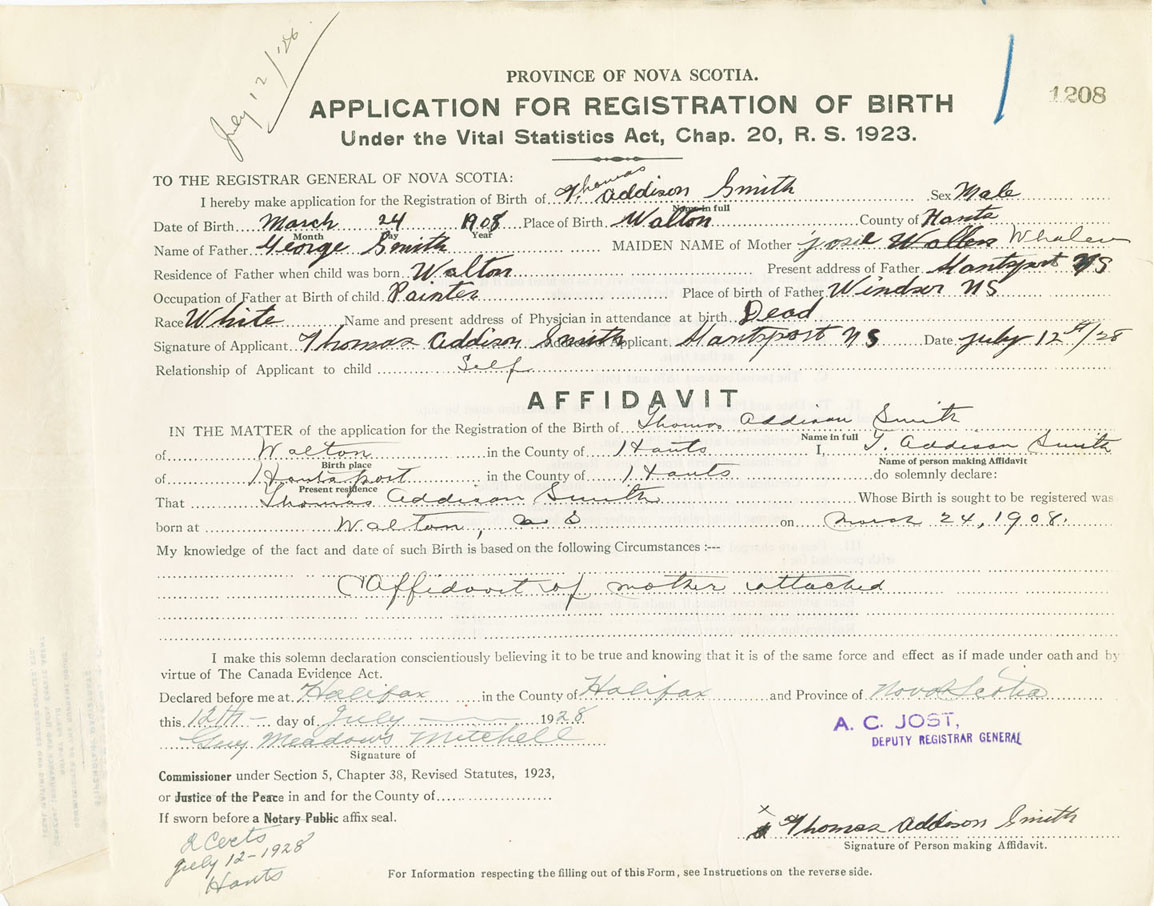 July 12/'28
PROVINCE OF NOVA SCOTIA.
1208
APPLICATION FOR REGISTRATION OF BIRTH
Under the Vital Statistics Act, Chap. 20, R. S. 1923.
TO THE REGISTRAR GENERAL OF NOVA SCOTIA:
I hereby make application for the Registration of Birth of Thomas Addison Smith Sex Male
Name in full
Date of Birth March 24 1908 Place of Birth Walton County of Hants
Month Day Year
Name of Father George Smith MAIDEN NAME of Mother Josie Wallen Whalen
Residence of Father when child was born Walton Present address of Father Hantsport NS
Occupation of Father at Birth of child Painter Place of birth of Father Windsor NS
Race White Name and present address of Physician in attendance at birth Dead
Signature of Applicant Thomas Addison Smith Address of Applicant Hantsport NS Date July 12th/28
Relationship of Applicant to child Self
AFFIDAVIT
IN THE MATTER of the application for the Registration of the Birth of Thomas Addison Smith
Name in full
of Walton in the County of Hants I, T. Addison Smith
Birth place Name of person making Affidavit
of Hantsport in the County of Hants do solemnly declare:
Present residence
That Thomas Addison Smith Whose Birth is sought to be registered was
born at Walton, N S on March 24, 1908.
My knowledge of the fact and date of such Birth is based on the following Circumstances :---
Affidavit of mother attached
I make this solemn declaration conscientiously believing it to be true and knowing that it is of the same force and effect as if made under oath and by
virtue of The Canada Evidence Act.
Declared before me at Halifax in the County of Halifax and Province of Nova Scotia
this 12th day of July 1928
A. C. JOST,
DEPUTY REGISTRAR GENERAL
Guy Meadows Mitchell
Signature of
Commissioner under Section 5, Chapter 38, Revised Statutes, 1923,
or Justice of the Peace in and for the County of
If sworn before a Notary Public affix seal.
x Thomas Addison Smith
Signature of Person making Affidavit.
2 Certs
July 12-1928
Hants
For Information respecting the filling out of this Form, see Instructions on the reverse side.